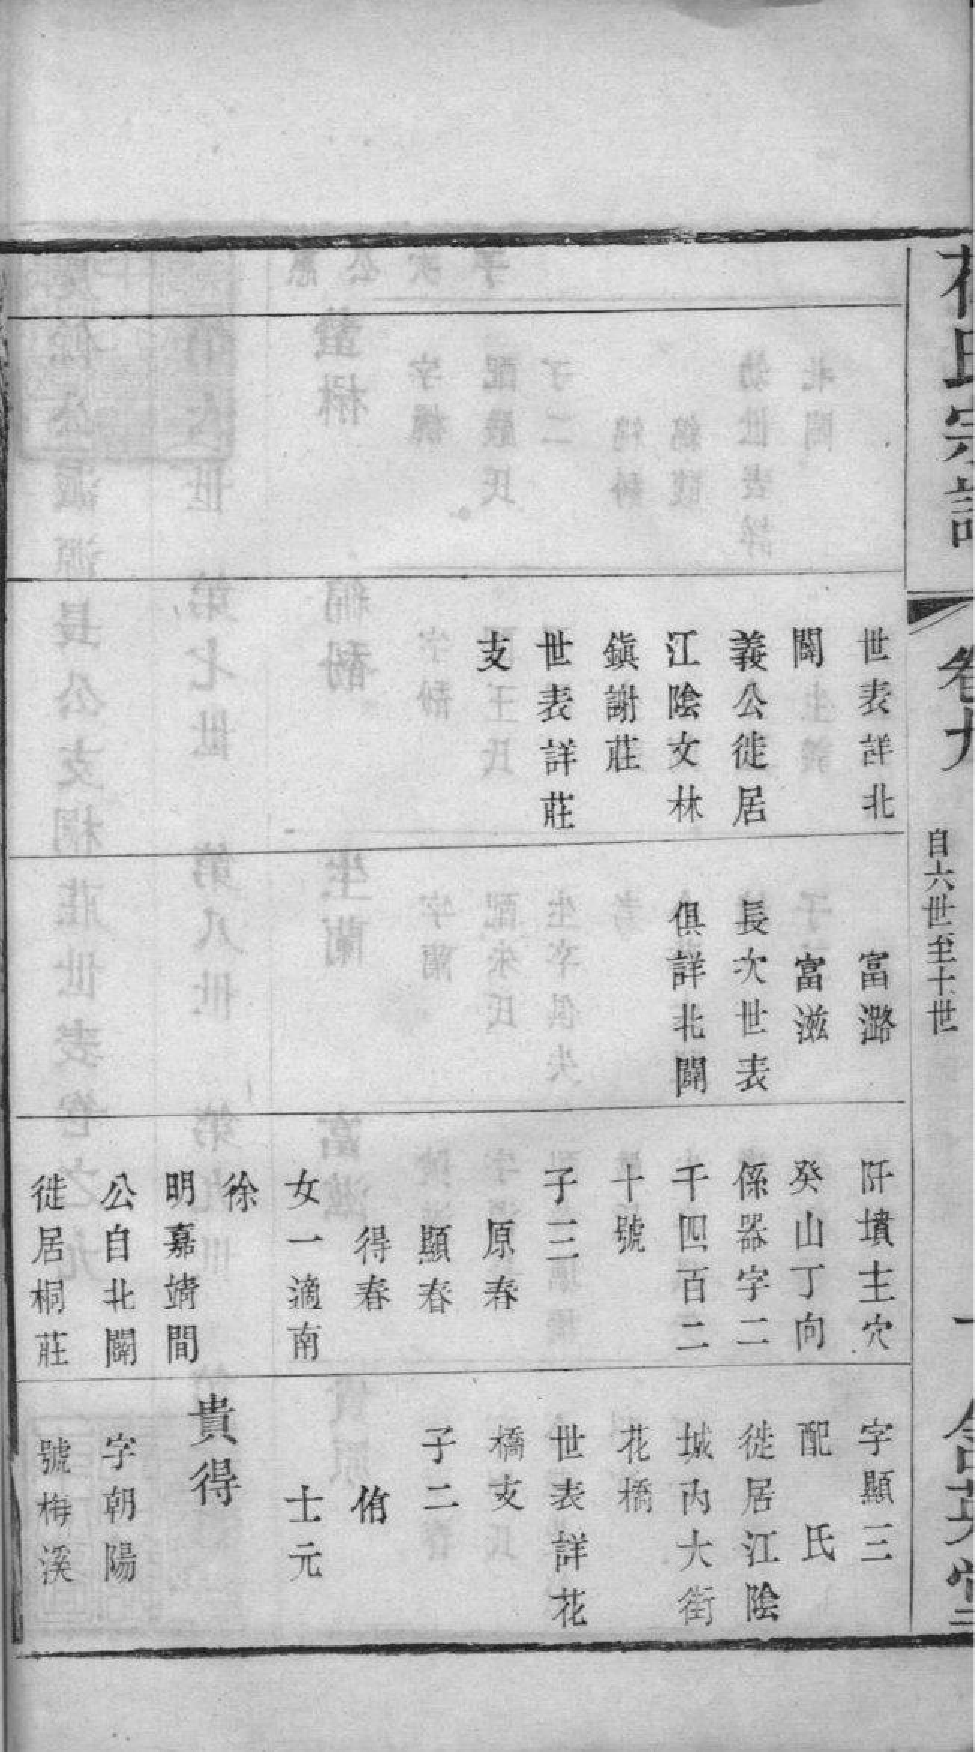 氏宗譜
卷九
自六世至十世
世表詳北
闗
義公徙居
江陰文林
鎮謝莊
世表詳莊
支
富潞
富滋
長次世表
俱詳北闗
阡墳主穴
癸山丁向
係器字二
千四百二
十號
子三
原春
顯春
得春
女一適南
徐
明嘉靖間
公自北闗
徙居桐莊
字顯三
配　氏
徙居江陰
城内大街
花橋
世表詳花
橋支
子二
伯
士元
貴得
字朝陽
號梅溪